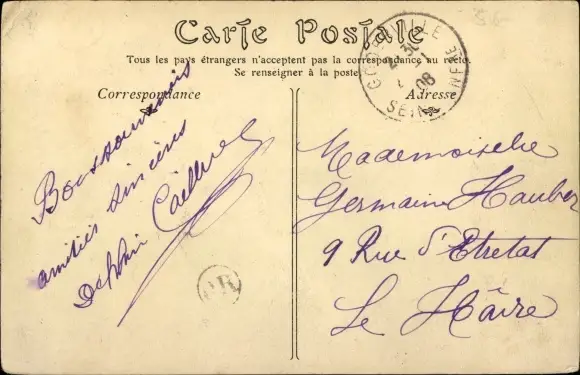 56
Carte Postale
Tous les pays étrangers n'acceptent pas la correspondance au recto.
Se renseigner à la poste.
Correspondance
Adresse
GODERVILLE
08
SEINE INFRE
Bons souvenirs
amitiés sincères
Delphin
Mademoiselle
Germaine Hauber
9 Rue d'Etretat
Le Hâvre
OR